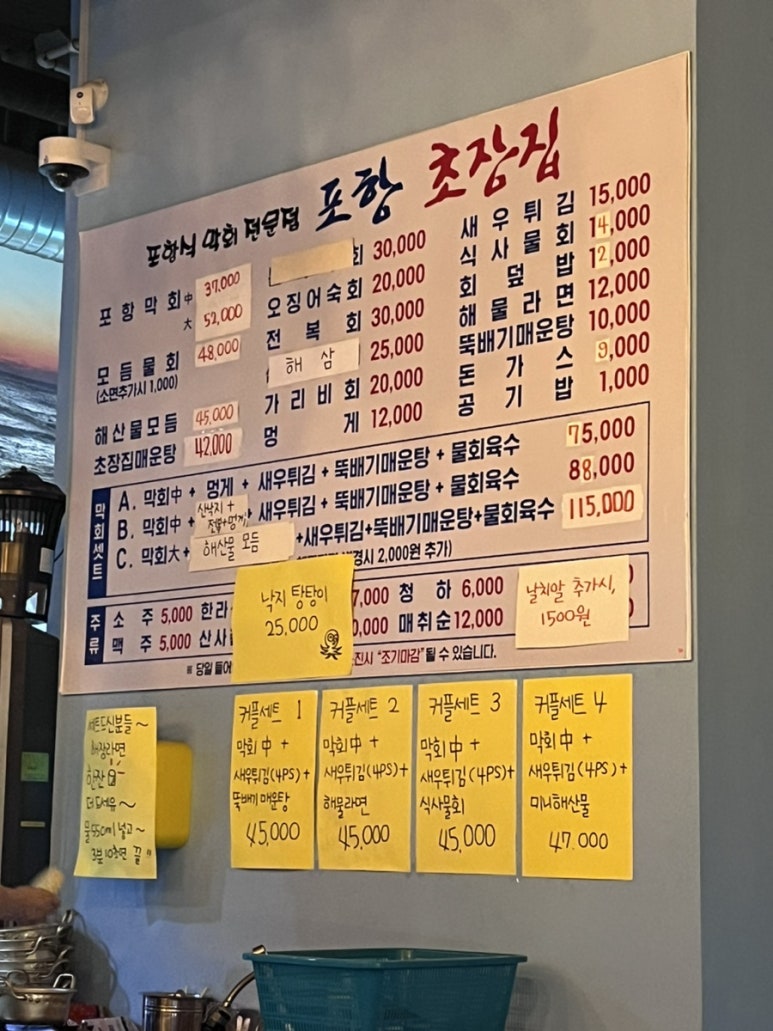 포항식 막회 전문점 포항 초장집
포항막회 中 37,000
大 52,000
모듬물회 48,000
(소면추가시 1,000)
해산물모듬 45,000
초장집매운탕 42,000
회 30,000
오징어숙회 20,000
전복회 30,000
해삼 25,000
가리비회 20,000
멍게 12,000
새우튀김 15,000
식사물회 14,000
회덮밥 12,000
해물라면 12,000
뚝배기매운탕 10,000
돈가스 9,000
공기밥 1,000
막회셋트
A. 막회中 + 멍게 + 새우튀김 + 뚝배기매운탕 + 물회육수 75,000
B. 막회中 + 산낙지 + 전복+멍게 + 새우튀김 + 뚝배기매운탕 + 물회육수 88,000
C. 막회大 + 해산물 모듬 +새우튀김+뚝배기매운탕+물회육수 115,000
경시 2,000원 추가)
주류
소주 5,000 한라 7,000 청하 6,000
맥주 5,000 산사 0,000 매취순 12,000
※ 당일 들어 진시 "조기마감"될 수 있습니다.
낙지 탕탕이
25,000
날치알 추가시,
1500원
세트드신분들~
해장라면
한잔
더 드세유~
물550ml 넣고~
3분10초면 끝"
커플세트 1
막회 中 +
새우튀김(4PS)+
뚝배기 매운탕
45,000
커플세트 2
막회 中 +
새우튀김(4PS)+
해물라면
45,000
커플세트 3
막회 中 +
새우튀김(4PS)+
식사물회
45,000
커플세트 4
막회 中 +
새우튀김(4PS)+
미니해산물
47.000